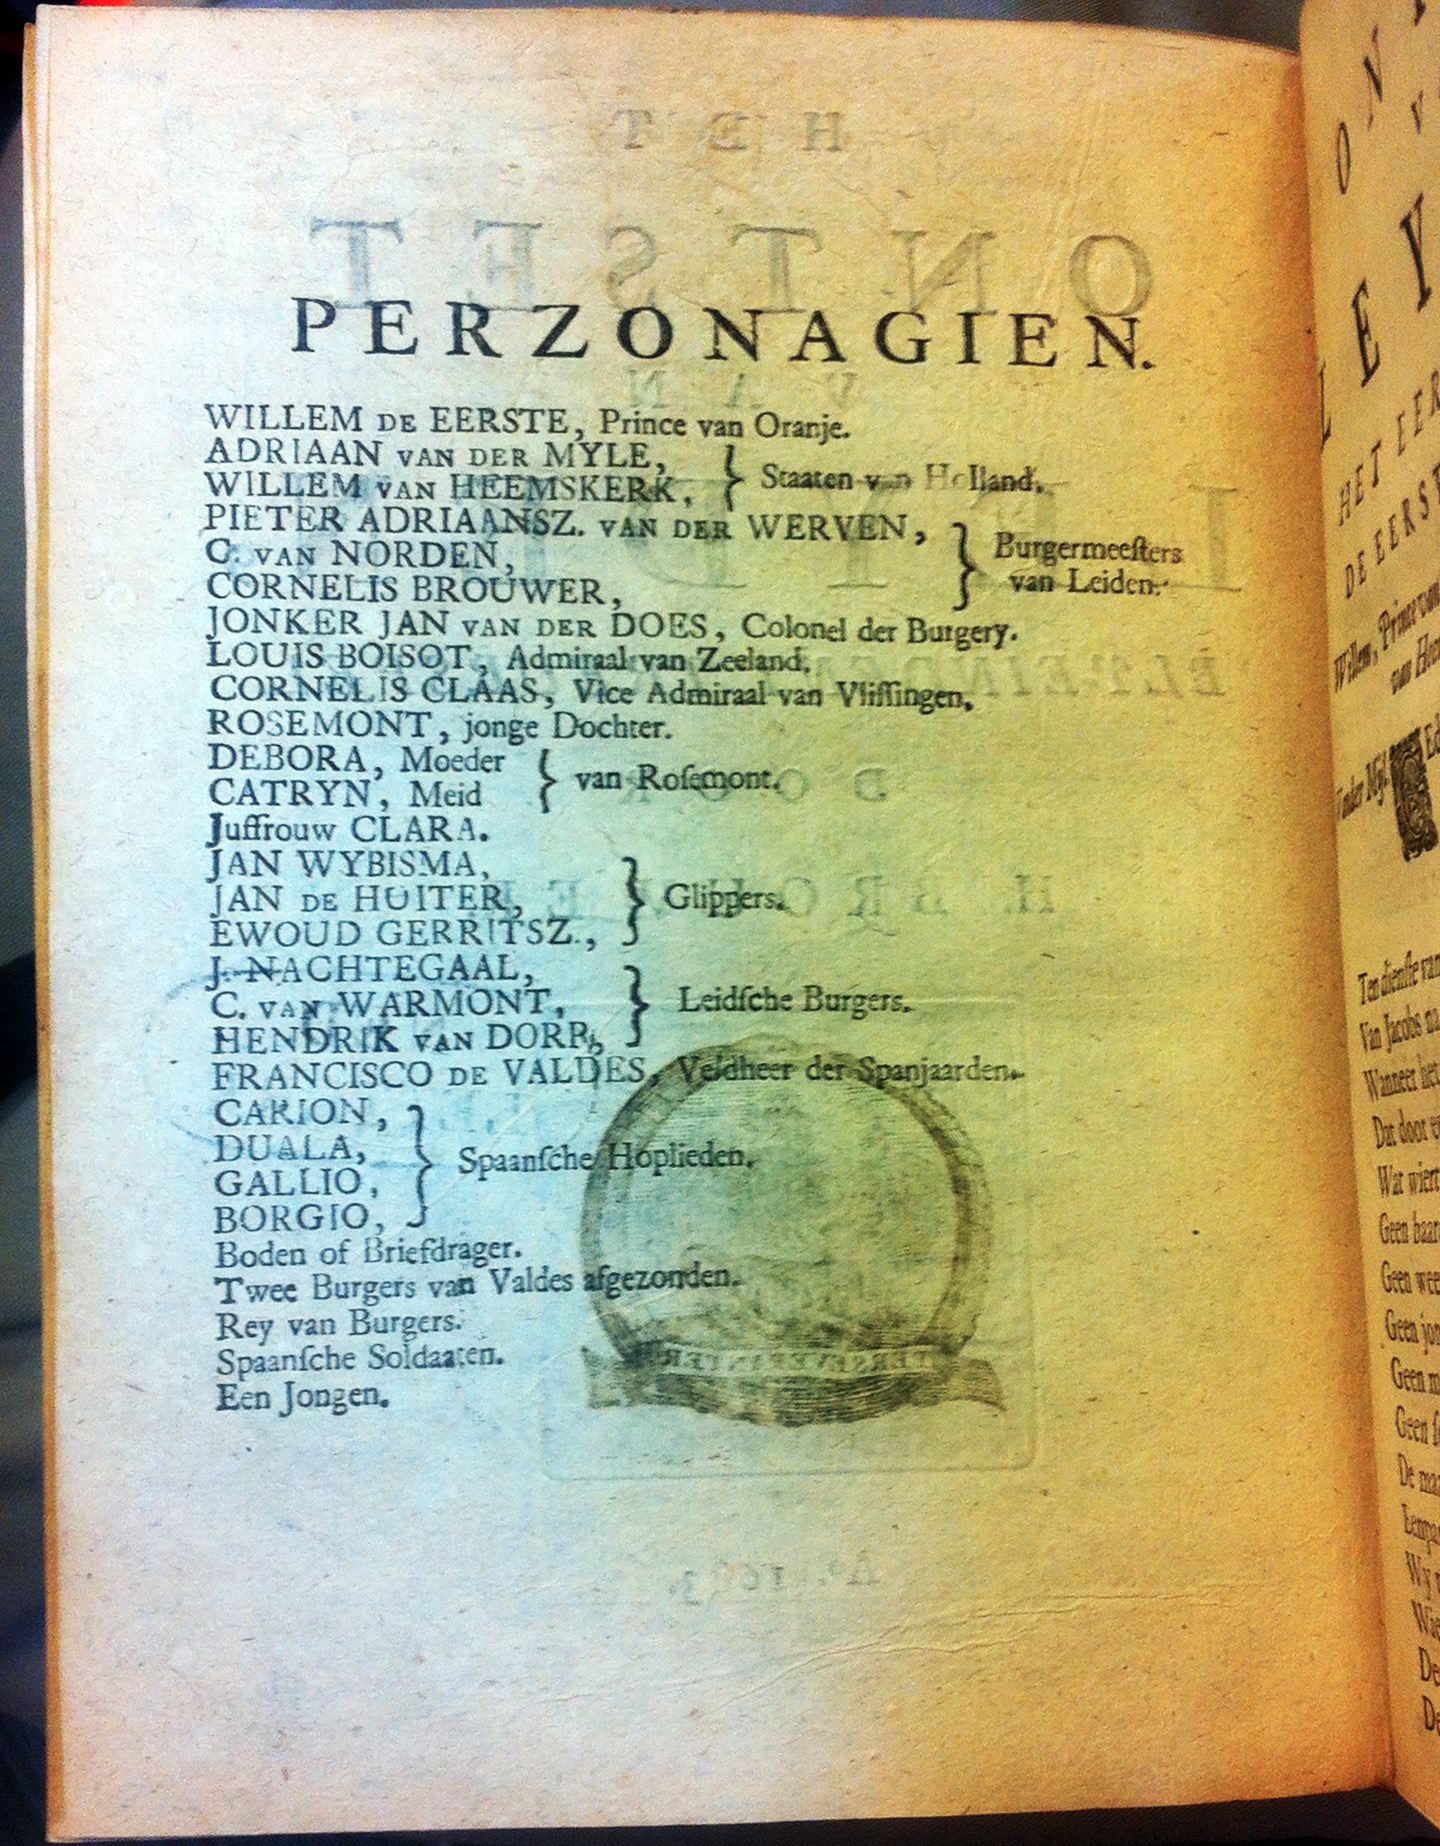 PERZONAGIEN.
WILLEM DE EERSTE, Prince van Oranje.
ADRIAAN VAN DER MYLE,
WILLEM VAN HEEMSKERK, } Staaten van Holland.
PIETER ADRIAANSZ. VAN DER WERVEN,
C. VAN NORDEN,
CORNELIS BROUWER, } Burgermeeſters van Leiden.
JONKER JAN VAN DER DOES, Colonel der Burgery.
LOUIS BOISOT, Admiraal van Zeeland.
CORNELIS CLAAS, Vice Admiraal van Vliſſingen.
ROSEMONT, jonge Dochter.
DEBORA, Moeder
CATRYN, Meid } van Roſemont.
Juffrouw CLARA.
JAN WYBISMA,
JAN DE HUITER,
EWOUD GERRITSZ., } Glippers.
J. NACHTEGAAL,
C. VAN WARMONT,
HENDRIK VAN DORP, } Leidſche Burgers.
FRANCISCO DE VALDES, Veldheer der Spanjaarden.
CARION,
DUALA,
GALLIO,
BORGIO, } Spaanſche Hoplieden.
Boden of Briefdrager.
Twee Burgers van Valdes afgezonden.
Rey van Burgers.
Spaanſche Soldaaten.
Een Jongen.
HET EER
DE EERST
Willem, Prince van
Ten dienſte van
Van Jacobs na
Wanneer het
Dat door
Wat wiert
Geen baar
Geen wee
Geen jon
Geen
Geen
De